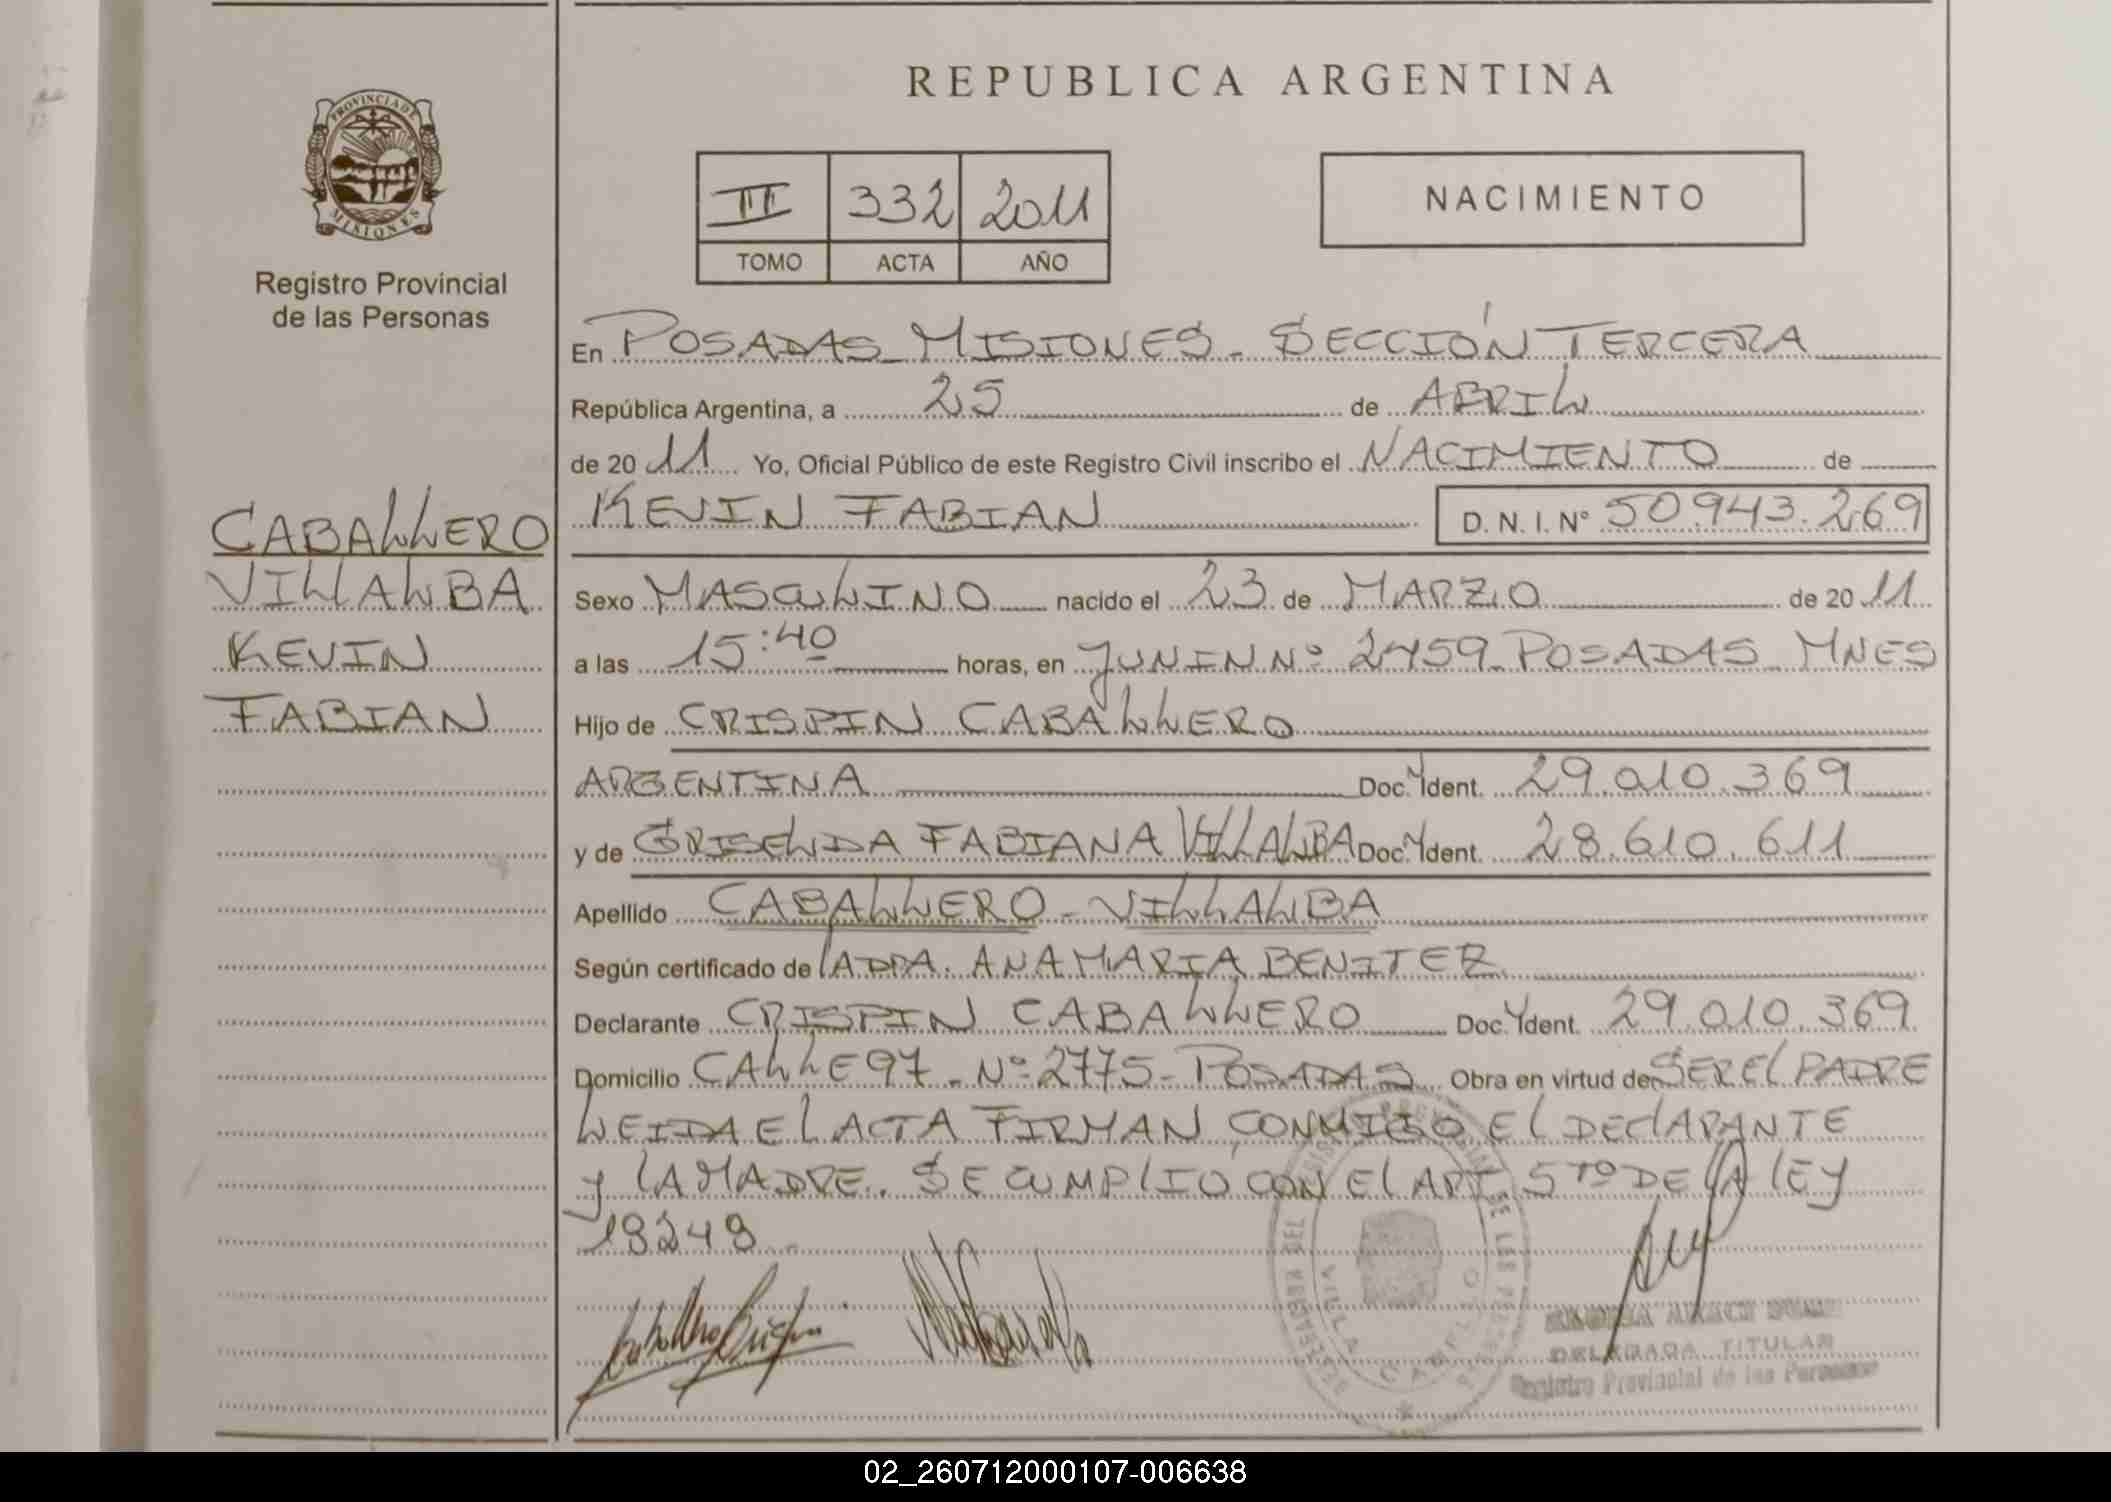 REPUBLICA ARGENTINA
PROVINCIA DE
MISIONES
Registro Provincial
de las Personas
III 332 2011
TOMO ACTA AÑO
NACIMIENTO
En POSADAS MISIONES - SECCIÓN TERCERA
República Argentina, a 25 de ABRIL
de 20 11 Yo, Oficial Público de este Registro Civil inscribo el NACIMIENTO de
KEVIN FABIAN D. N. I. Nº 50.943.269
CABALLERO
VILLALBA
KEVIN
FABIAN
Sexo MASCULINO nacido el 23 de MARZO de 20 11
a las 15:40 horas, en JUNIN Nº 2459 - POSADAS MNES
Hijo de CRISPIN CABALLERO
ARGENTINA Doc. Ident. 29.010.369
y de GRISELDA FABIANA VILLALBA Doc. Ident. 28.610.611
Apellido CABALLERO - VILLALBA
Según certificado de LA DRA. ANA MARIA BENITEZ
Declarante CRISPIN CABALLERO Doc. Ident. 29.010.369
Domicilio CALLE 97 - Nº 2775 - POSADAS Obra en virtud de SER EL PADRE
LEIDA EL ACTA FIRMAN CONMIGO EL DECLARANTE
Y LA MADRE. SE CUMPLIÓ CON EL ART 5TO DE LA LEY
18248
VILLA CABELLO
DELEGADA TITULAR
Registro Provincial de las Personas
02_260712000107-006638